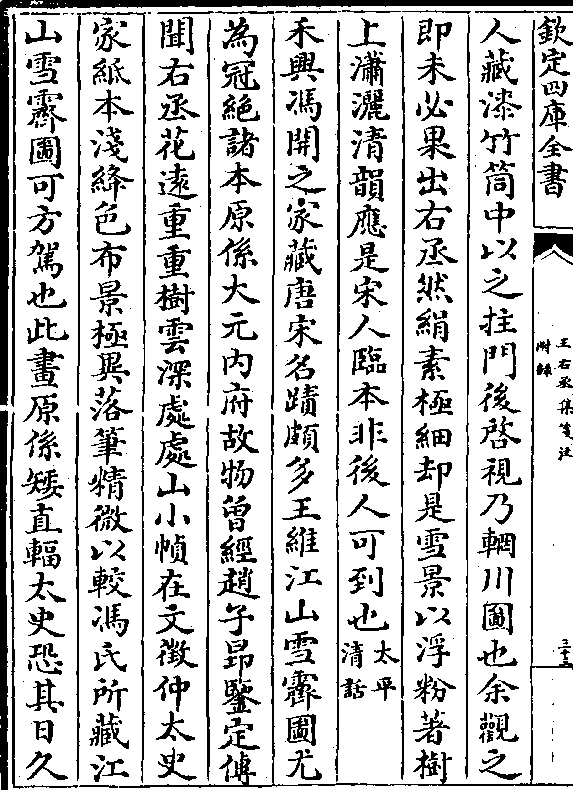 欽定四庫全書
王右丞集箋注
附錄
三十三
人藏漆竹筒中以之拄門後啓視乃輞川圖也余觀之
即未必果出右丞然絹素極細却是雪景以浮粉著樹
上瀟灑清韻應是宋人臨本非後人可到也太平清話
禾興馮開之家藏唐宋名蹟頗多王維江山雪霽圖尤
為冠絶諸本原係大元内府故物曾經趙子昻鑒定傅
聞右丞花遠重重樹雲深處處山小幀在文徵仲太史
家紙本淺絳色布景極異落筆精微以較馮氏所藏江
山雪霽圖可方駕也此畫原係矮直輻太史恐其日久